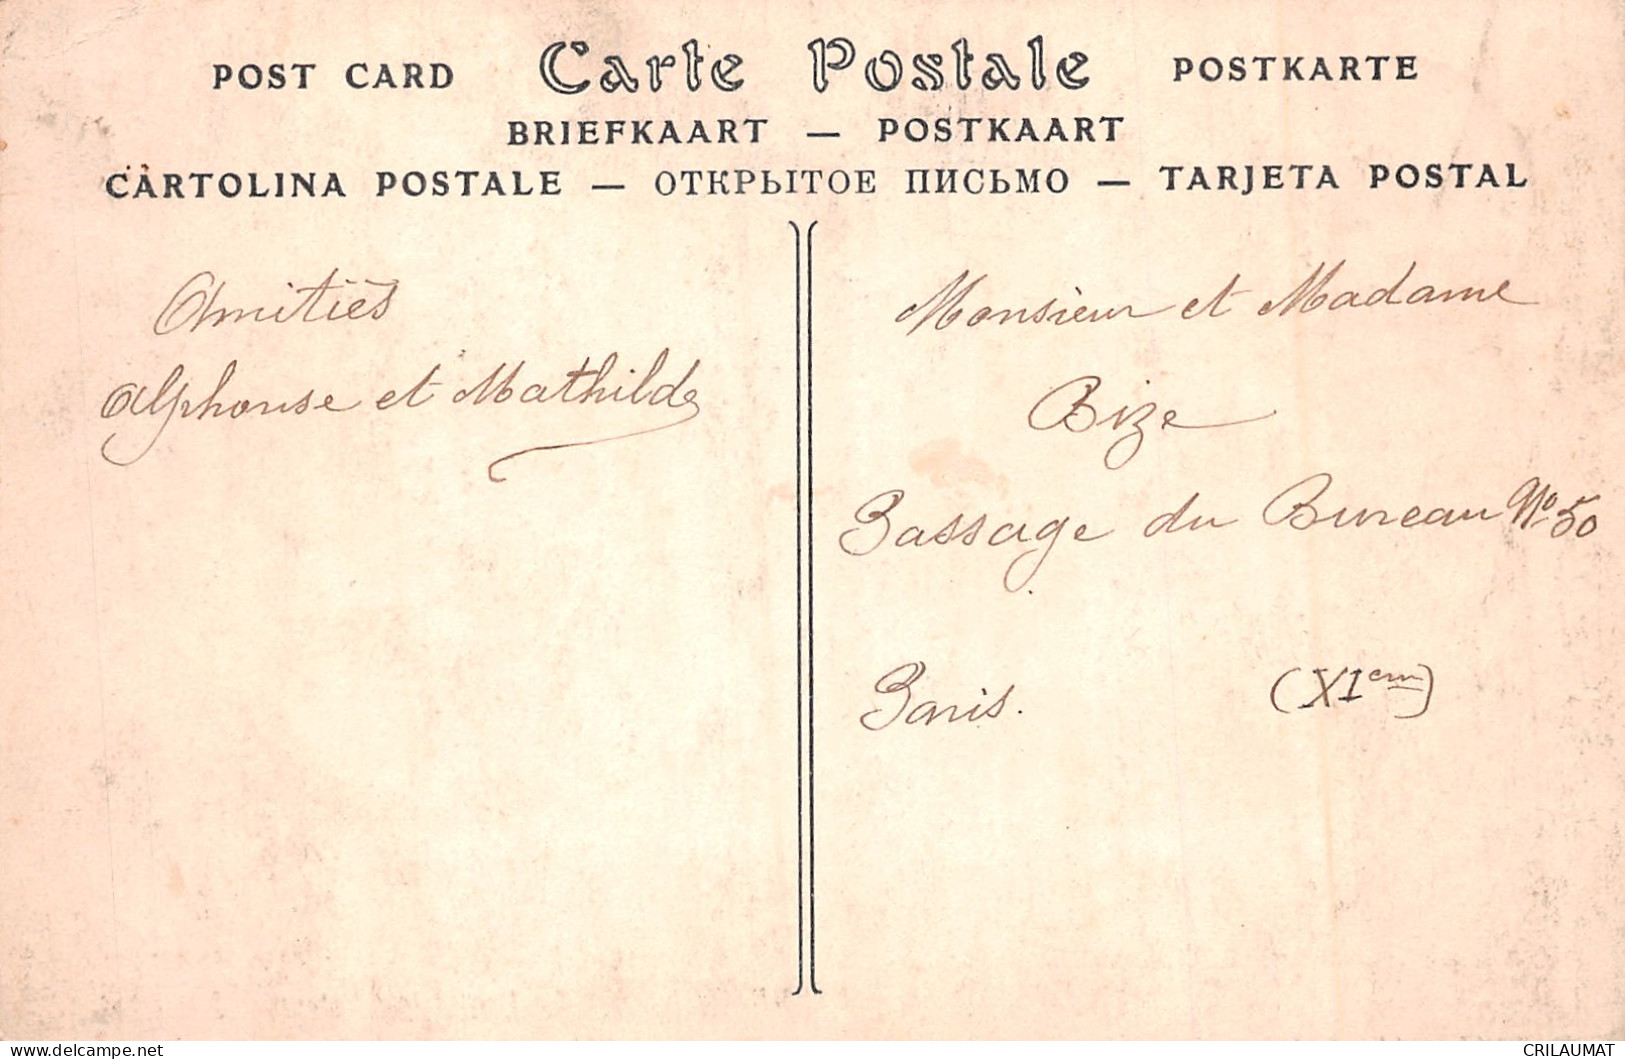 POST CARD Carte Postale POSTKARTE
BRIEFKAART — POSTKAART
CARTOLINA POSTALE — ОТКРЫТОЕ ПИСЬМО — TARJETA POSTAL
Amitiés
Alphonse et Mathilde
Monsieur et Madame
Bize
Passage du Bureau No 50
Paris. (XIem)
www.delcampe.net
CRILAUMAT